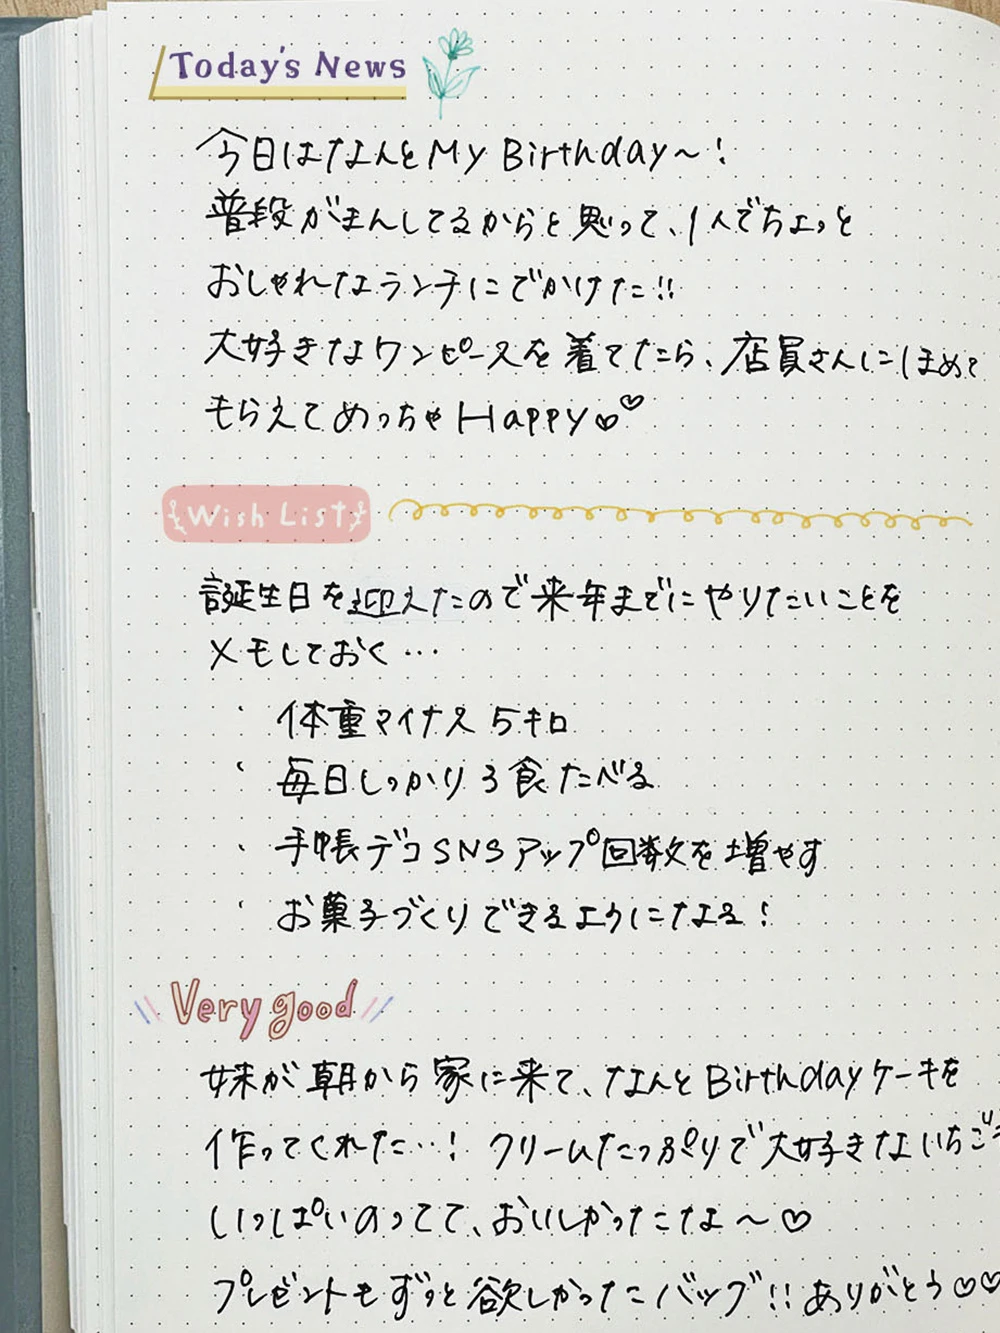 Today's News
今日はなんと My Birthday〜!
普段がまんしてるからと思って、1人でちょっと
おしゃれなランチにでかけた!!
大好きなワンピースを着てたら、店員さんにほめて
もらえてめっちゃHappy♡♡
Wish List
誕生日を迎えたので来年までにやりたいことを
メモしておく…
・体重マイナス5キロ
・毎日しっかり3食たべる
・手帳デコSNSアップ回数を増やす
・お菓子づくりできるようになる!
Very good
妹が朝から家に来て、なんとBirthdayケーキを
作ってくれた…! クリームたっぷりで大好きないちごう
いっぱいのってて、おいしかったなぁ〜♡
プレゼントもずっと欲しかったバッグ!!ありがとう♡♡